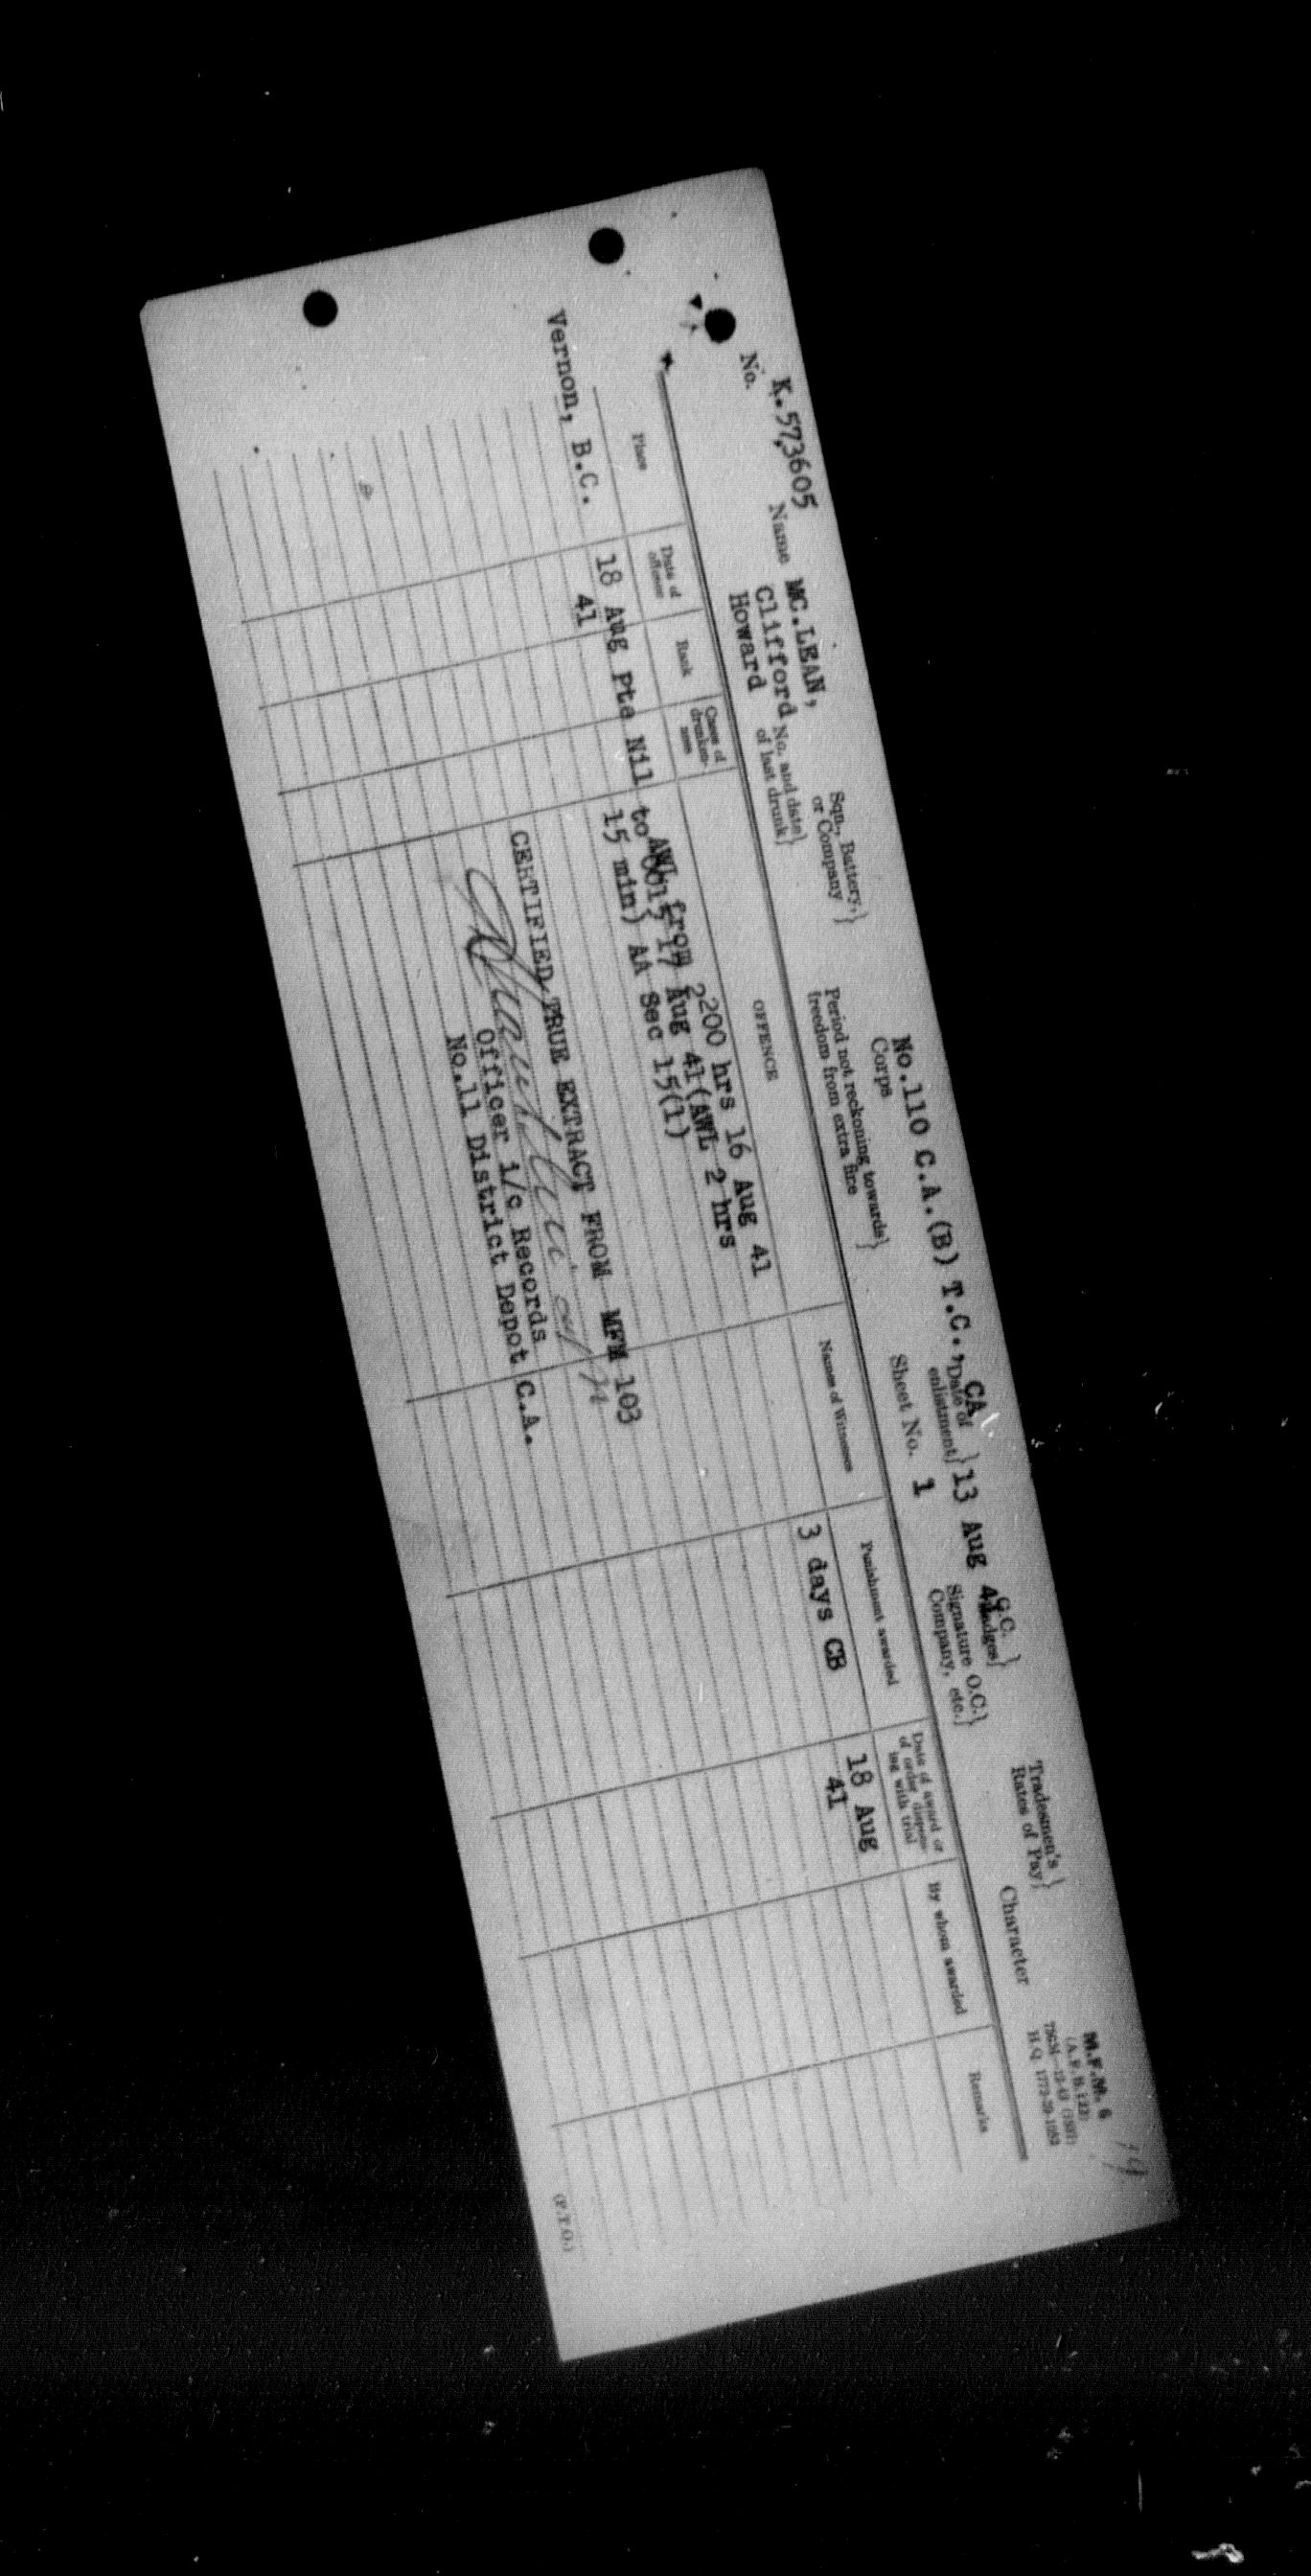 M.F.M. 6
(A.F.B. 122)
H.Q. 1772-39-1052
Sqn., Battery, or Company} No.110 C.A.(B) T.C., CA Corps
Date of enlistment} 13 Aug 41
G.C. Badges}
Tradesmen's Rates of Pay}
No. K.573605 Name MC.LEAN,
Clifford
Howard
No. and date of last drunk}
Period not reckoning towards freedom from extra fine}
Sheet No. 1
Signature O.C. Company, etc.}
Character
Place
Date of offence
Rank
Cases of drunken-ness
OFFENCE
Names of Witnesses
Punishment awarded
Date of award or of order dispens-ing with trial
By whom awarded
Remarks
Vernon, B.C. 18 Aug 41 Pte Nil
AWL from 2200 hrs 16 Aug 41
to 0015 17 Aug 41(AWL 2 hrs
15 min) AA Sec 15(1)
3 days CB
18 Aug
41
CERTIFIED TRUE EXTRACT FROM MFM 103
Officer i/c Records
No.11 District Depot C.A.
(P.T.O.)